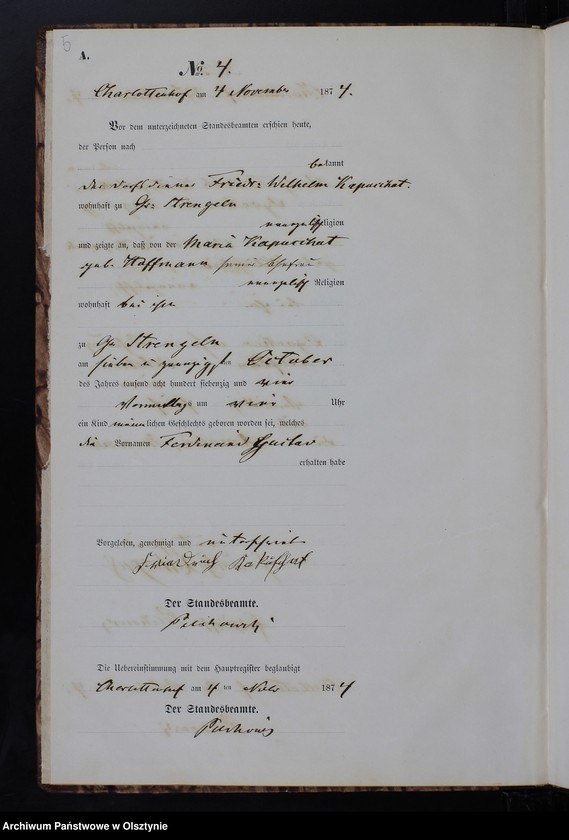 5
A.
No. 4.
Charlottenhof am 4 November 1874.
Vor dem unterzeichneten Standesbeamten erschien heute,
der Person nach
bekannt
Friedr: Wilhelm Kaparichat.
wohnhaft zu Gr. Strengeln
evangelisch Religion
und zeigte an, daß von der Maria Kaparichat
geb. Hoffmann seiner Ehefrau
evangelisch Religion
wohnhaft bei ihm
zu Gr Strengeln
am sieben u zwanzigsten October
des Jahres tausend acht hundert siebenzig und vier
Vormittags um vier Uhr
ein Kind männlichen Geschlechts geboren worden sei, welches
die Vornamen Ferdinand Gustav
erhalten habe
Vorgelesen, genehmigt und unterschrieben
Friedrich
Der Standesbeamte.
Die Uebereinstimmung mit dem Hauptregister beglaubigt
Charlottenhof am 4 ten Nvbr 1874
Der Standesbeamte.
Archiwum Państwowe w Olsztynie